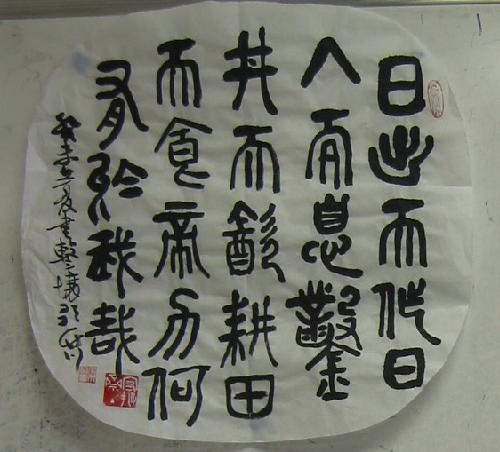 日出而作日
入而息鑿
井而飲耕田
而食帝力何
有於我哉
癸未年夏書擊壤歌